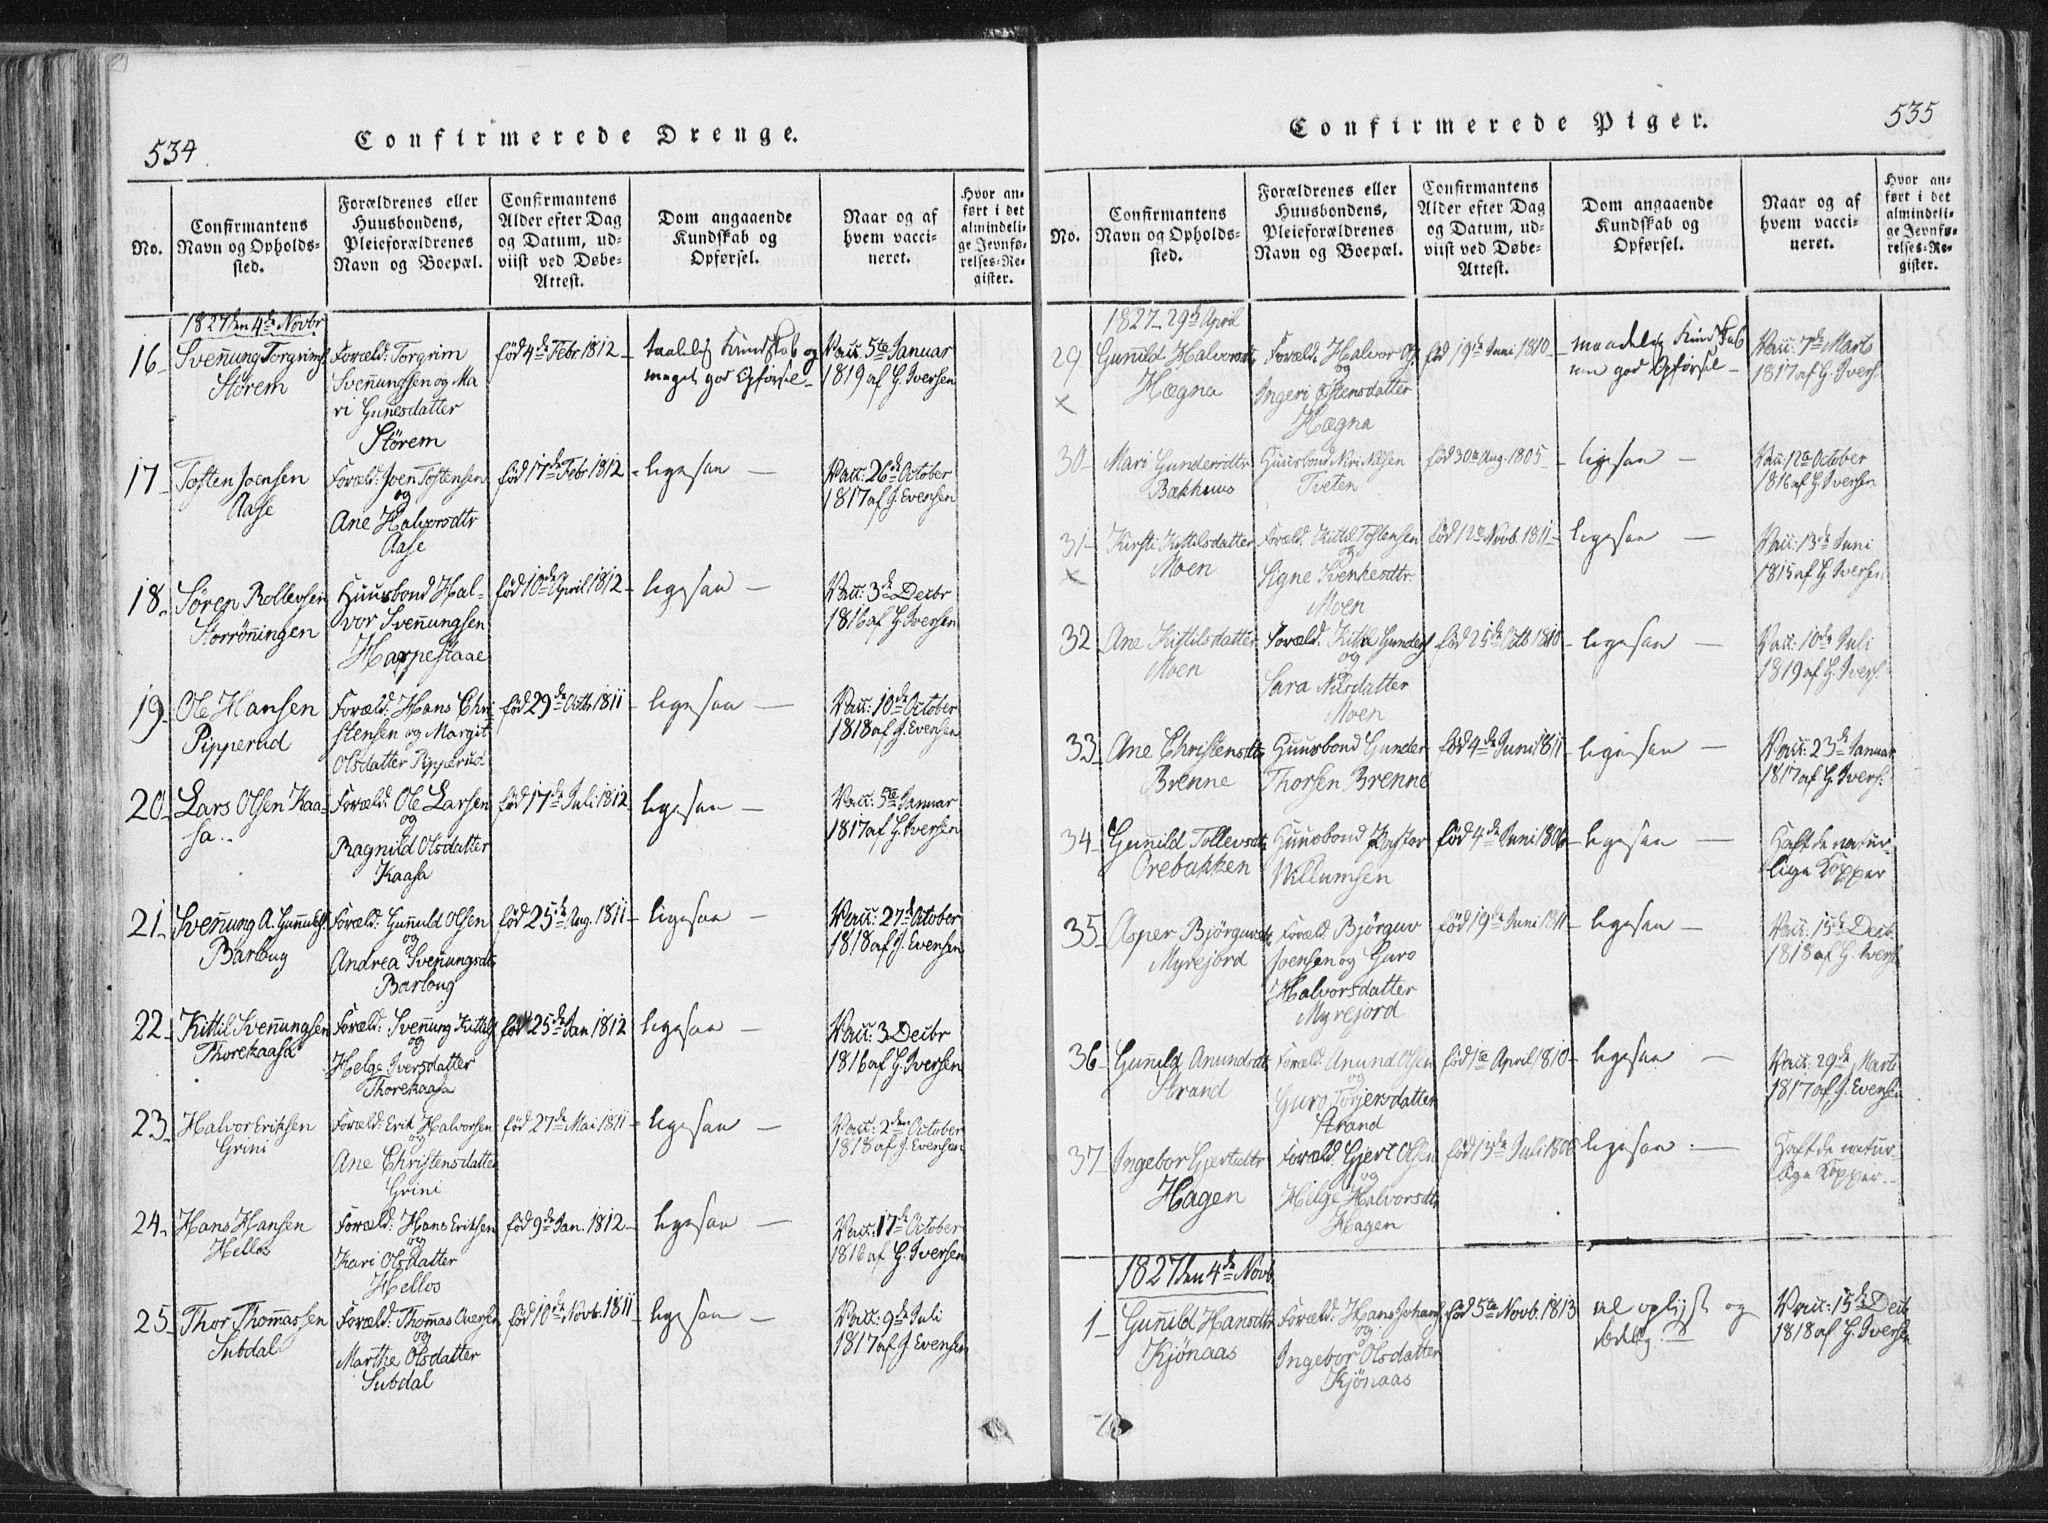 534
Confirmerede Drenge.
No.
Confirmantens Navn og Opholds-sted.
Forældrenes eller Huusbondens, Pleieforældrenes Navn og Boepæl.
Confirmantens Alder efter Dag og Datum, ud-viist ved Døbe-Attest.
Dom angaaende Kundskab og Opførsel.
Naar og af hvem vacci-neret.
Hvor an-ført i det almindeli-ge Jevnfø-relses-Re-gister.
1827 den 4de Novbr
16 Svenung Torgrims Størem
Foræld: Torgrim Svenungsen og Ma-ri Gunesdatter Størem
fød 4de Febr. 1812
taalelig Kundskab og meget god Opførsel
Vacc: 5te Januar 1819 af G. Iversen
17 Tosten Joensen Aase
Foræld: Joen Tostensen og Ane Halvorsdtr Aase
fød 17de Febr 1812
ligesaa
Vacc: 26de October 1817 af J. Evensen
18 Søren Rollevsen Storrøningen
Huusbond Hal-vor Svenungsen Harpestaae
fød 10de April 1812
ligesaa
Vacc: 3de Decbr 1816 af G. Iversen
19 Ole Hansen Pipperud
Foræld: Hans Chri-stensen og Margit Olsdatter Pipperud
fød 29de Octbr 1811
ligesaa
Vacc: 10de October 1818 af J. Evensen
20 Lars Olsen Kaa-sa
Foræld: Ole Larsen og Ragnild Olsdatter Kaasa
fød 17de Juli 1812
ligesaa
Vacc: 5te Januar 1817 af G. Iversen
21 Svenung A. Gunulfs. Barloug
Foræld: Gunuld Olsen og Andrea Svenungsdtr Barloug
fød 25de Aug. 1811
ligesaa
Vacc: 27de October 1818 af J. Evensen
22 Kittil Svenungsen Thorekaasa
Foræld: Svenung Kittils og Helge Iversdatter Thorekaasa
fød 25de Jan 1812
ligesaa
Vacc: 3 Decbr 1816 af G. Iversen
23 Halvor Eriksen Grini
Foræld: Erik Halvorsen og Ane Christensdatter Grini
fød 27de Mai 1811
ligesaa
Vacc: 2den October 1818 af J. Evensen
24 Hans Hansen Hellos
Foræld: Hans Eriksen og Kari Olsdatter Hellos
fød 9de Jan. 1812
ligesaa
Vacc: 17de October 1816 af G. Iversen
25 Thor Thomassen Subdal
Foræld: Thomas Oversen og Marthe Olsdatter Subdal
fød 10de Novb. 1811
ligesaa
Vacc: 9de Juli 1817 af J. Evensen
535
Confirmerede Piger.
No.
Confirmantens Navn og Opholds-sted.
Forældrenes eller Huusbondens, Pleieforældrenes Navn og Boepæl.
Confirmantens Alder efter Dag og Datum, ud-viist ved Døbe-Attest.
Dom angaaende Kundskab og Opførsel.
Naar og af hvem vacci-neret.
Hvor an-ført i det almindeli-ge Jevnfø-relses-Re-gister.
1827 29de April
29 Gunild Halvorsdtr Hægna
Foræld: Halvor og Ingeri Østensdatter Hægna
fød 19de Juni 1810
maadelig Kundskab men god Opførsel
Vacc: 7de Marts 1817 af G. Ivers:
30 Mari Gundersdtr Bækhuus
Huusbond Nilsen Tveten
fød 30te Aug. 1805
ligesaa
Vacc: 12te October 1816 af G. Iversen
31 Kirsti Kittilsdatter Moen
Foræld: Kittil Tostensen og Signe Svenkesdtr. Moen
fød 12te Novb. 1811
ligesaa
Vacc: 13de Juni 1815 af G. Iversen
32 Ane Kittilsdatter Moen
Foræld: Kittil Gunders og Sara Nilsdatter Moen
fød 25de Octb 1810
ligesaa
Vacc: 10de Juli 1819 af G. Ivers:
33 Ane Christensdtr Brenne
Huusbond Gunder Thorsen Brenne
fød 4de Juni 1811
ligesaa
Vacc: 23de Januar 1817 af G. Ivers:
34 Gunild Tollevsdtr Orebakken
Huusbond Pastor Willumsen
fød 4de Juni 1806
ligesaa
Haft de natur-lige Kopper
35 Asper Bjørguvsdtr Myrejord
Foræld: Bjørguv Joensen og Guro Halvorsdatter Myrejord
fød 19de Juni 1811
ligesaa
Vacc: 15de Decb. 1818 af G. Iversen
36 Gunild Anundsdtr Strand
Foræld: Anund Olsen og Guro Torjersdatter Strand
fød 1te April 1810
ligesaa
Vacc: 29de Marts 1817 af J. Evensen
37 Ingebor Gjertsdtr Hagen
Foræld: Gjert Olsen og Helge Halvorsdtr Hagen
fød 13de Juli 1808
ligesaa
Haft de natur-lige Kopper
1827 den 4de Novb.
1 Gunild Hansdtr Kjønaas
Foræld: Hans Johans og Ingebor Olsdatter Kjønaas
fød 5te Novb. 1813
vel oplyst og sædelig
Vacc: 15de Decb 1818 af G. Iversen